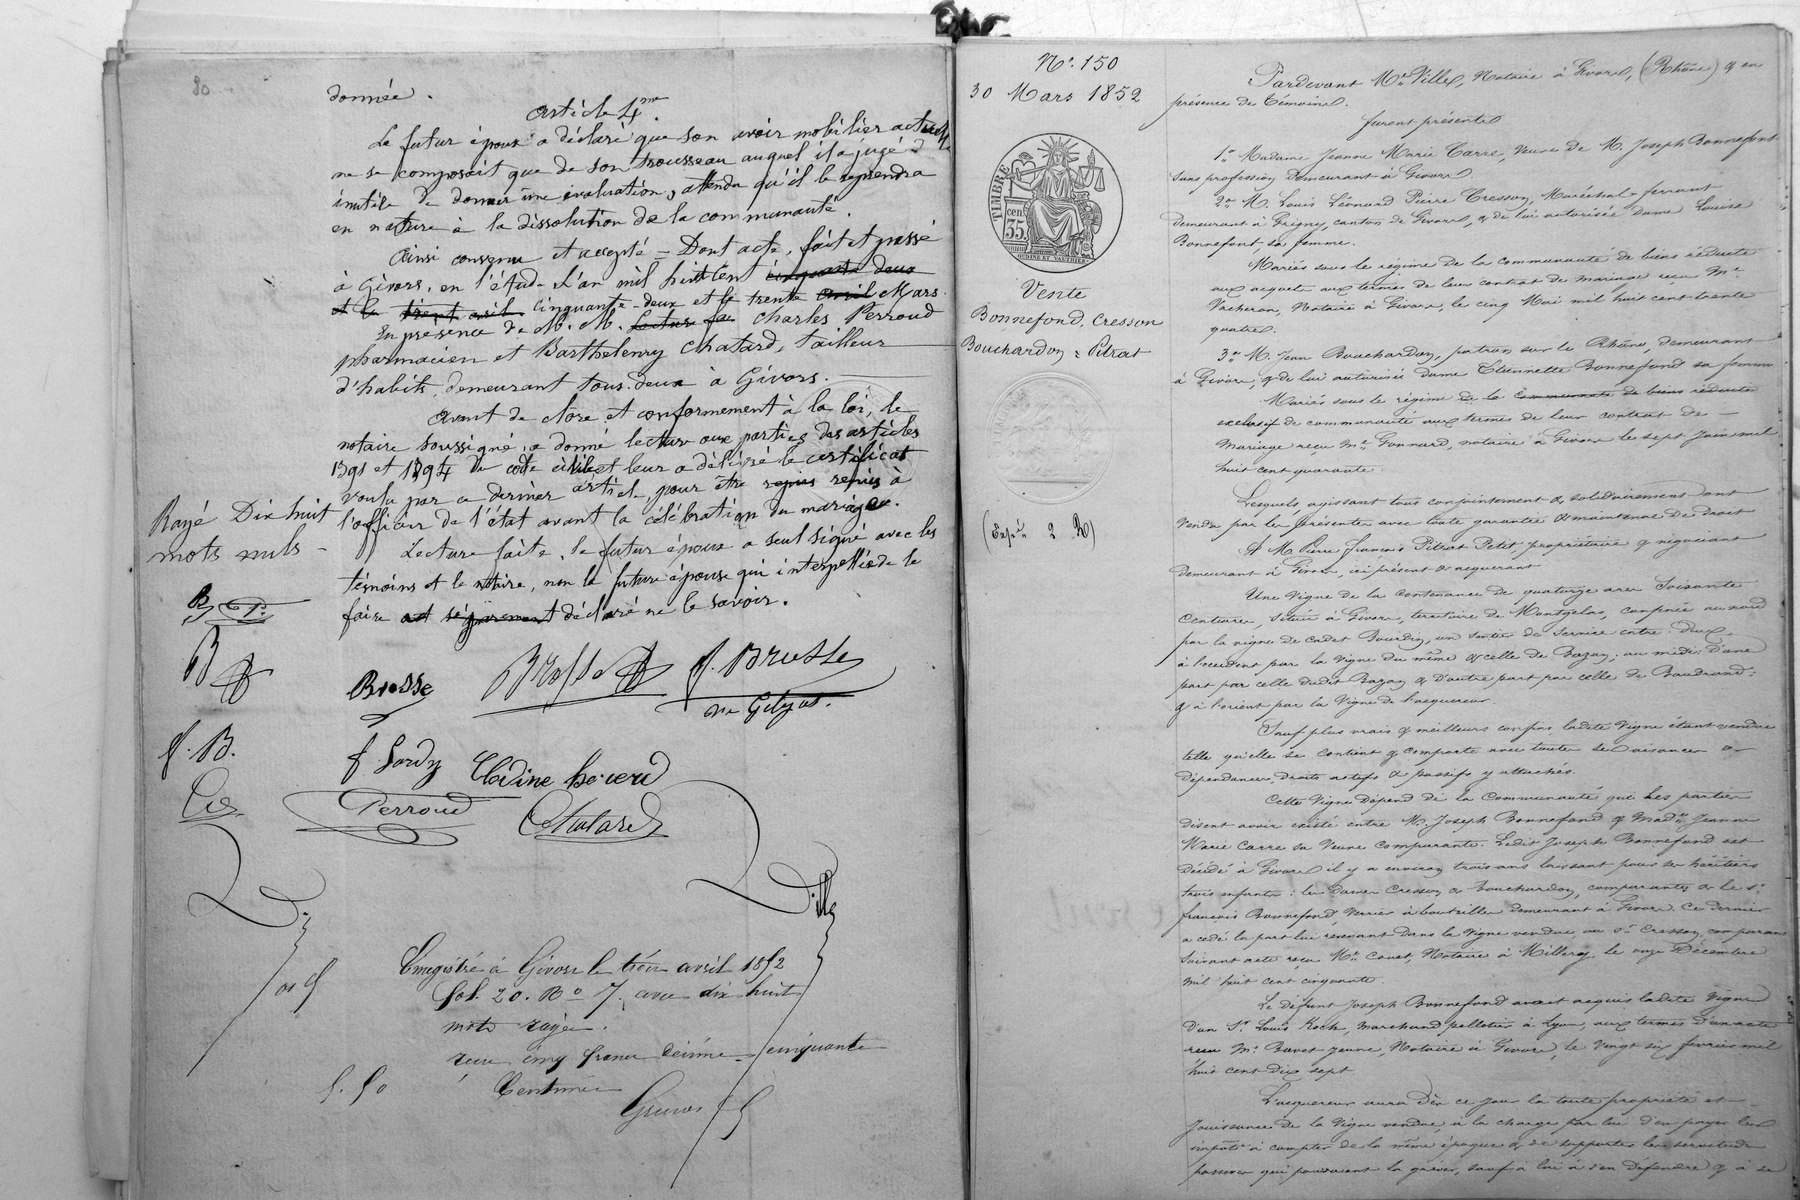 80
donnée.
Article 4me.
Le futur époux a déclaré que son avoir mobilier actuel
ne se composait que de son trousseau auquel il a jugé
inutile de donner une évaluation, attendu qu'il le reprendra
en nature à la dissolution de la communauté.
Ainsi convenu et accepté = Dont acte, fait et passé
à Givors, en l'étude L'an mil huit cent cinquante deux
et le trent avril cinquante-deux et le trente avril Mars.
En présence de M. M. Charles Perroud
pharmacien et Barthelemy Chatard, tailleur
d'habits, demeurant tous deux à Givors.
Avant de clore et conformement à la loi, le
notaire soussigné, a donné lecture aux parties des articles
1391 et 1394 du code civil et leur a délivré le certificat
voulu par ce dernier article, pour être remis à
l'officier de l'état avant la célébration du mariage.
Rayé Dix huit
mots nuls -
Lecture faite, le futur époux a seul signé avec les
témoins et le notaire, non la future épouse qui interpellée de le
faire a déclaré ne le savoir.
Brosse
Brosse
f. Brosse
f. B.
f Lordy
Perroud
Chatard
Enregistré à Givors le trois avril 1852
fol. 20. Ro 7. avec dix huit
mots rayés.
reçu cinq francs décime cinquante
5. 50
Centimes
No. 150
30 Mars 1852
TIMBRE
35 cen
OUDINE ET VAUTHIER
Vente
Bonnefond, Cresson
Bouchardon = Pitrat
(Exp.n 2 R)
Pardevant Me Ville, Notaire à Givors, (Rhône) & en
présence de témoins.
furent présents
1o Madame Jeanne Marie Carre, Veuve de M. Joseph Bonnefont
sans profession demeurant à Givors.
2o M. Louis Léonard Pierre Cresson, Maréchal-ferrant
demeurant à Grigny, canton de Givors, & de lui autorisée dame Louise
Bonnefont sa femme.
Mariés sous le régime de la communauté de biens réduite
aux acquets aux termes de leur contrat de mariage reçu Me
Vacheron, Notaire à Givors, le cinq Mai mil huit cent trente
quatre.
3o M. Jean Bouchardon, patron sur le Rhône, demeurant
à Givors, & de lui autorisée dame Etiennette Bonnefond sa femme
Mariés sous le régime de la communauté de biens réduite
exclusif de communauté aux termes de leur contrat de
mariage reçu Me Gonnard, notaire à Givors le sept Juin mil
huit cent quarante.
Lesquels agissant tous conjointement & solidairement ont
vendu par les présentes avec toute garantie & maintenue de droit
A M. Pierre François Pitrat Petit propriétaire & négociant
demeurant à Givors, ici présent & acquerant
Une Vigne de la contenance de quatorze ares soixante
centiares, située à Givors, territoire de Montgelas, confinée au nord
par la vigne de cadet Bourdin, un sentier de service entre deux,
à l'occident par la Vigne du même & celle de Bazan; au midi d'une
part par celle dudit Bazan & d'autre part par celle de Baudrand;
& à l'orient par la Vigne de l'acquereur.
Sauf plus vrais & meilleurs confins ladite Vigne étant vendue
telle qu'elle se contient & comporte avec toutes ses aisances &
dépendances, Droits actifs & passifs y attachés.
Cette Vigne dépend de la Communauté que les parties
disent avoir existé entre M. Joseph Bonnefond & Made Jeanne
Marie Carre sa Veuve comparante. Ledit Joseph Bonnefond est
décédé à Givors il y a environ trois ans laissant pour ses héritiers
trois enfants: les dames Cresson & Bouchardon, comparantes & le Sr
francois Bonnefond, Verrier à bouteilles demeurant à Givors. Ce dernier
a cédé la part lui revenant dans la Vigne vendue, au Sr Cresson, comparant
suivant acte reçu Me Couet, Notaire à Millery le onze Décembre
mil huit cent cinquante.
Le défunt Joseph Bonnefond avait acquis ladite Vigne
d'un Sr Louis Koch, marchand pelletier à Lyon, aux termes d'un acte
reçu Me Bavet jeune, Notaire à Givors, le vingt six fevrier mil
huit cent dix sept.
L'acquereur aura dès ce jour la toute propriété et
jouissance de la Vigne vendue, à la charge par lui d'en payer les
impôts à compter de la même époque & de supporter les servitudes
passives qui pouvaient la grever, sauf à lui à s'en défendre & à se